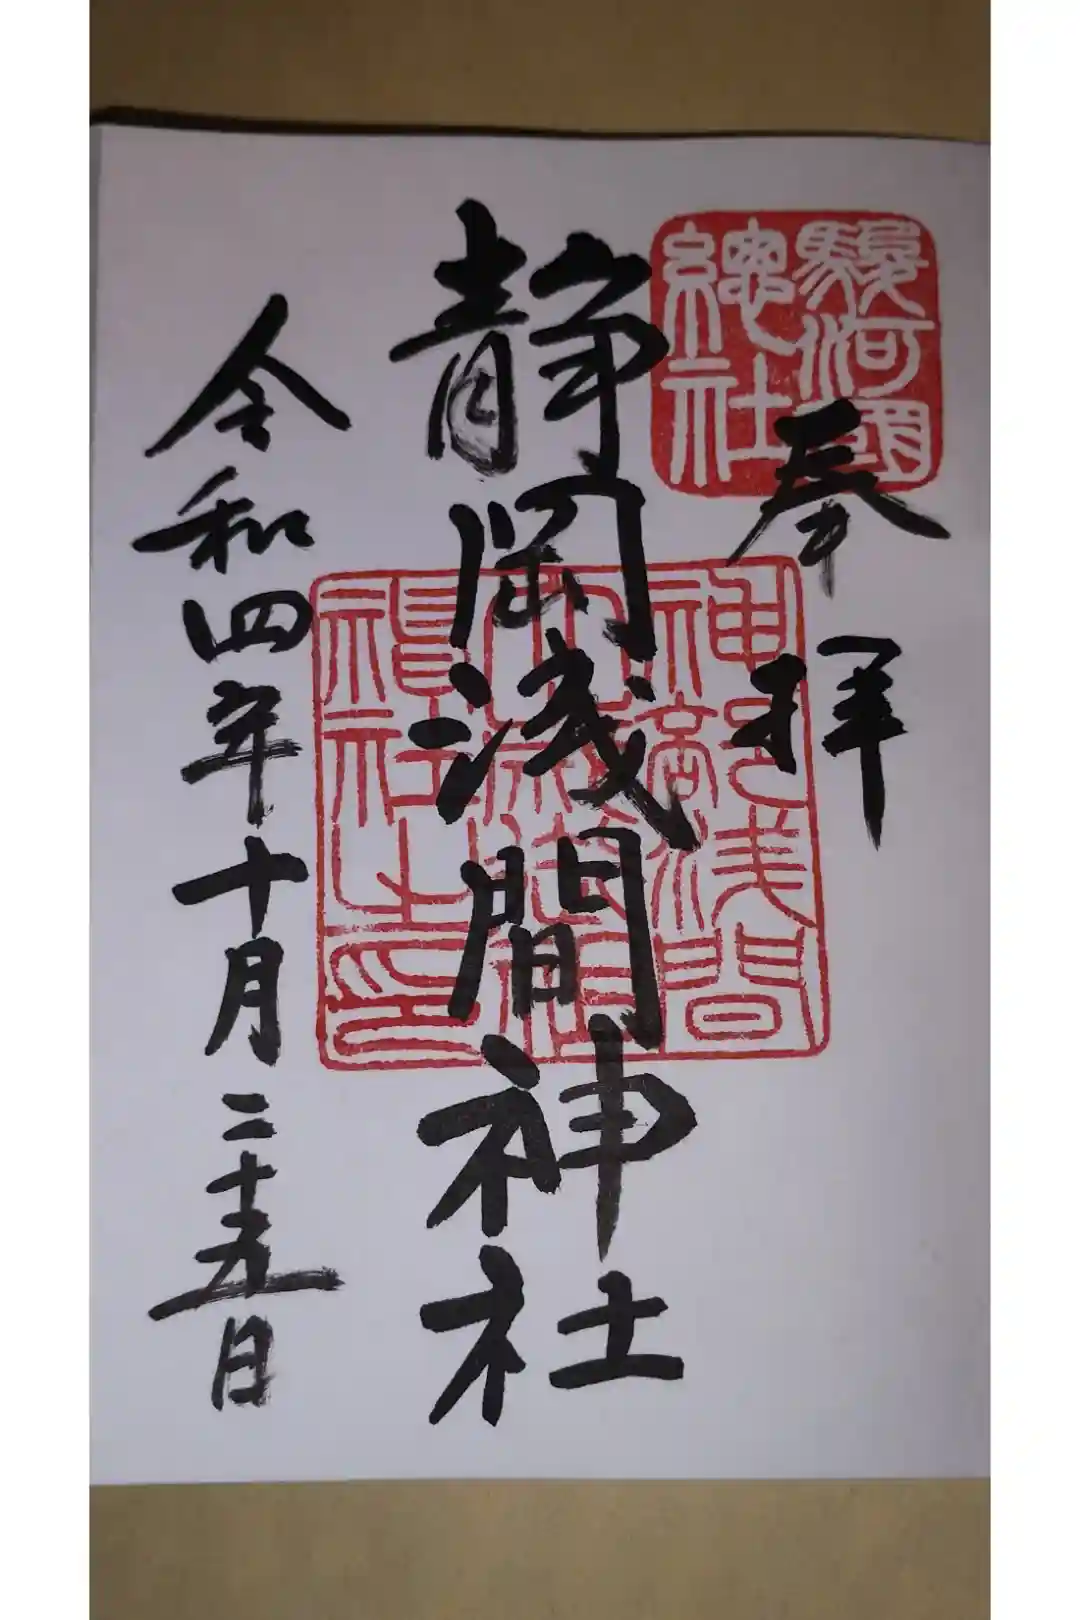 駿河國
總社
奉拝
静岡浅間神社
神部浅間
大歳御祖
神社之印
令和四年十月二十五日